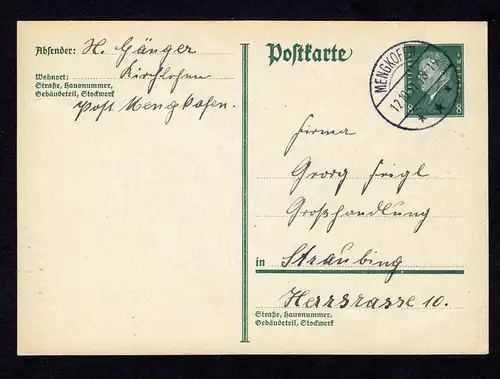 Absender: H. Gänger
Wohnort: Kirchlohen
Straße, Hausnummer,
Gebäudeteil, Stockwerk
Post Mengkofen.
Postkarte
MENGKOFEN
12.10.
8 8
Firma
Georg
Großhandlung
in Straubing
Herrsrasse 10.
Straße, Hausnummer,
Gebäudeteil, Stockwerk